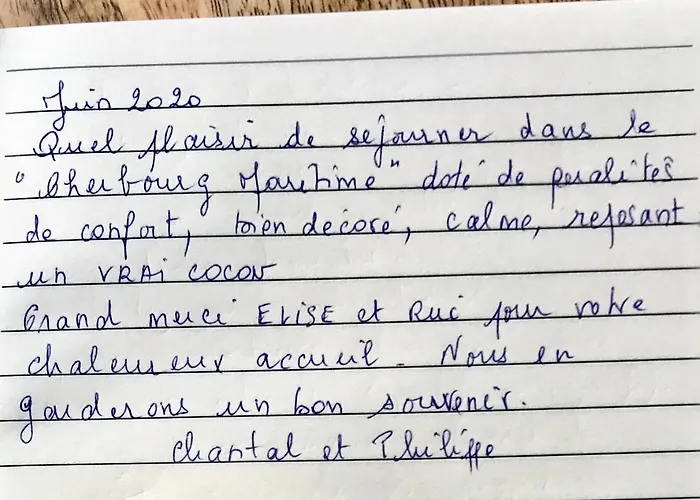 Juin 2020
Quel plaisir de sejourner dans le
"Cherbourg Maritime" doté de qualités
de confort, bien decoré, calme, reposant
un VRAi COCON
Grand merci ELISE et Rui pour votre
chaleureux accueil. Nous en
garderons un bon souvenir.
Chantal et Philippe